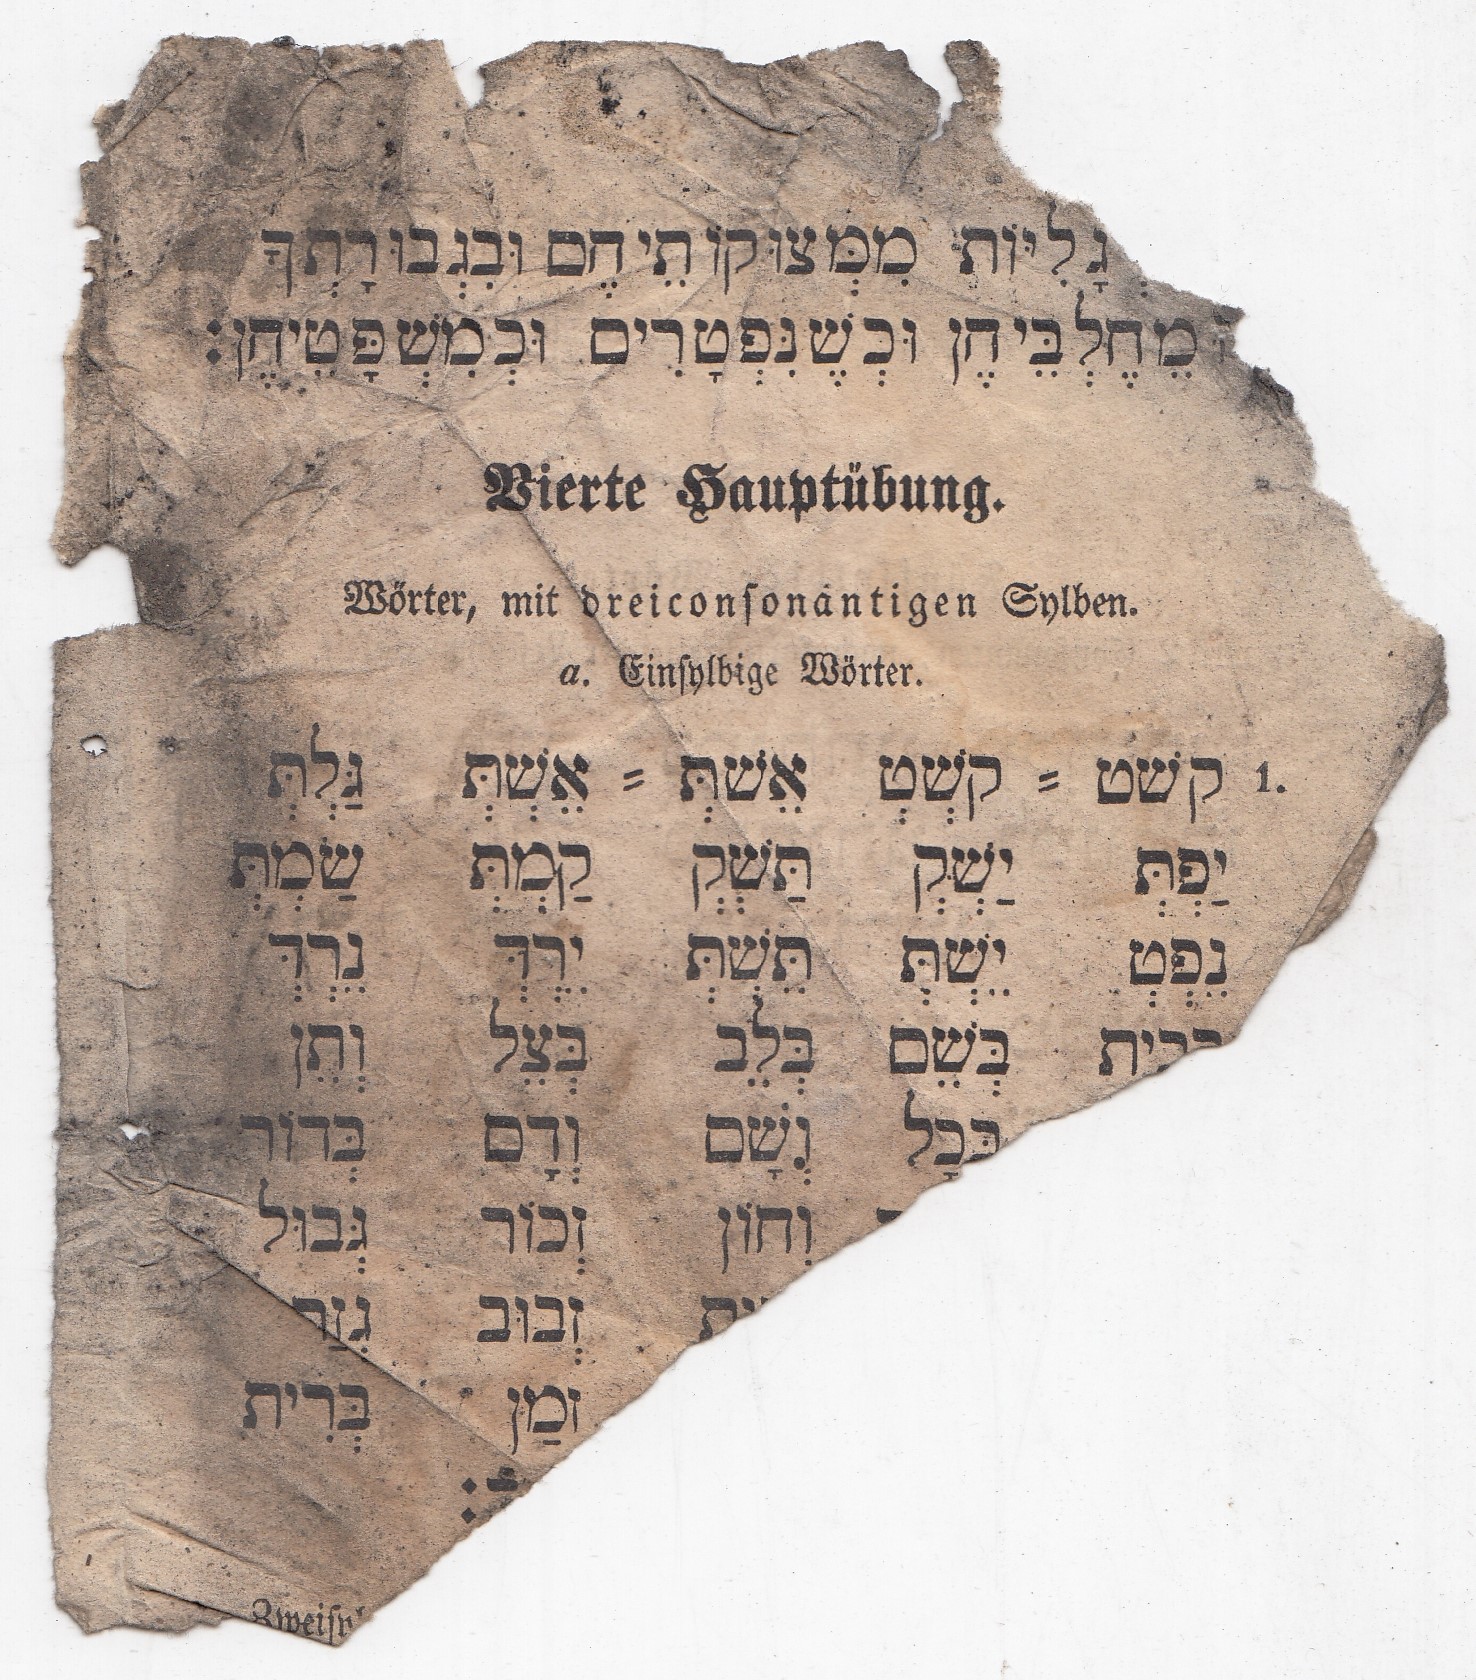 גָּלִיּוֹת מִמְּצוּקוֹתֵיהֶם וּבִגְבוּרָתְךָ
מֵחֶלְבֵּיהֶן וּכְשֶׁנִּפְטָרִים וּכְמִשְׁפָּטֵיהֶן:
Vierte Hauptübung.
Wörter, mit dreiconsonantigen Sylben.
a. Einsylbige Wörter.
1. קשׁט = קשְׁטְ אֵשׁתְּ = אֵשְׁתְּ גַּלְתְּ
יַפְתְּ יַשְׁקְ תַּשְׁקְ קַמְתְּ שַׂמְתְּ
נֵפְטְ יֵשְׁתְּ תֵּשְׁתְּ יֵרְדְּ נֵרְדְּ
בְּשֵׁם בְּלֵב בְּצֵל וְתֵן
בְּכָל וְשָׁם וְדָם בְּדוֹר
וְחוֹן זְכוֹר גְּבוּל
זְבוּב גְזַר
זמַן בְּרִית